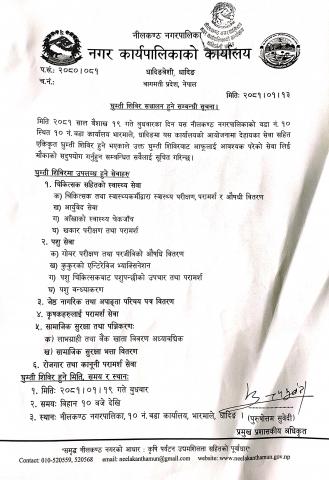 नीलकण्ठ नगरपालिका
नगर कार्यपालिकाको कार्यालय
धादिङबेशी, धादिङ
बागमती प्रदेश, नेपाल
प.सं: २०८०/०८१
च.नं.:
मिति: २०८१/०१/१३
घुम्ती शिविर सञ्चालन हुने सम्बन्धी सूचना।
मिति २०८१ साल बैशाख १९ गते बुधवारका दिन यस नीलकण्ठ नगरपालिकाको वडा नं. १०
स्थित १० नं. वडा कार्यालय भारमाले, धादिङमा यस कार्यालयको आयोजनामा देहायका सेवा सहित
एकिकृत घुम्ती शिविर हुने भएकाले उक्त घुम्ती शिविरबाट आफूलाई आवश्यक परेको सेवा लिई
मौकाको सदुपयोग गर्नुहुन सम्बन्धित सबैलाई सूचित गरिन्छ।
घुम्ती शिविरमा उपलब्ध हुने सेवाहरु
१. चिकित्सक सहितको स्वास्थ्य सेवा
क) चिकित्सक तथा स्वास्थ्यकर्मीद्वारा स्वास्थ्य परीक्षण, परामर्श र औषधी वितरण
ख) आयुर्वेद सेवा
ग) आँखाको स्वास्थ्य चेकजाँच
घ) खकार परीक्षण तथा परामर्श
२. पशु सेवा
क) गोबर परीक्षण तथा परजीवीको औषधि वितरण
ख) कुकुरको एन्टिरेबिज भ्याक्सिनेशन
ग) पशु चिकित्सकबाट पशुपन्छीको उपचार तथा परामर्श
घ) पशु बन्ध्याकरण
३. जेष्ठ नागरिक तथा अपाङ्गता परिचय पत्र वितरण
४. कृषकहरुलाई परामर्श सेवा
५. सामाजिक सुरक्षा तथा पञ्जिकरण:
क) लाभग्राही तथा बैंक खाता विवरण अध्यावधिक
ख) सामाजिक सुरक्षा भत्ता वितरण
६. रोजगार तथा कानूनी परामर्श सेवा
घुम्ती शिविर हुने मिति, समय र स्थान:
१. मिति: २०८१/०१/१९ गते बुधवार
२. समय: विहान १० बजे देखि
३. स्थान: नीलकण्ठ नगरपालिका, १० नं. वडा कार्यालय, भारमाले, धादिङ।
(पुरुषोत्तम सुवेदी)
प्रमुख प्रशासकीय अधिकृत
"समृद्ध नीलकण्ठ नगरको आधार : कृषि पर्यटन उद्यमशिलता सहितको पूर्वाधार"
Contact: 010-520559, 520568 email: neelakanthamun@gmail.com website: www.neelakanthamun.gov.np